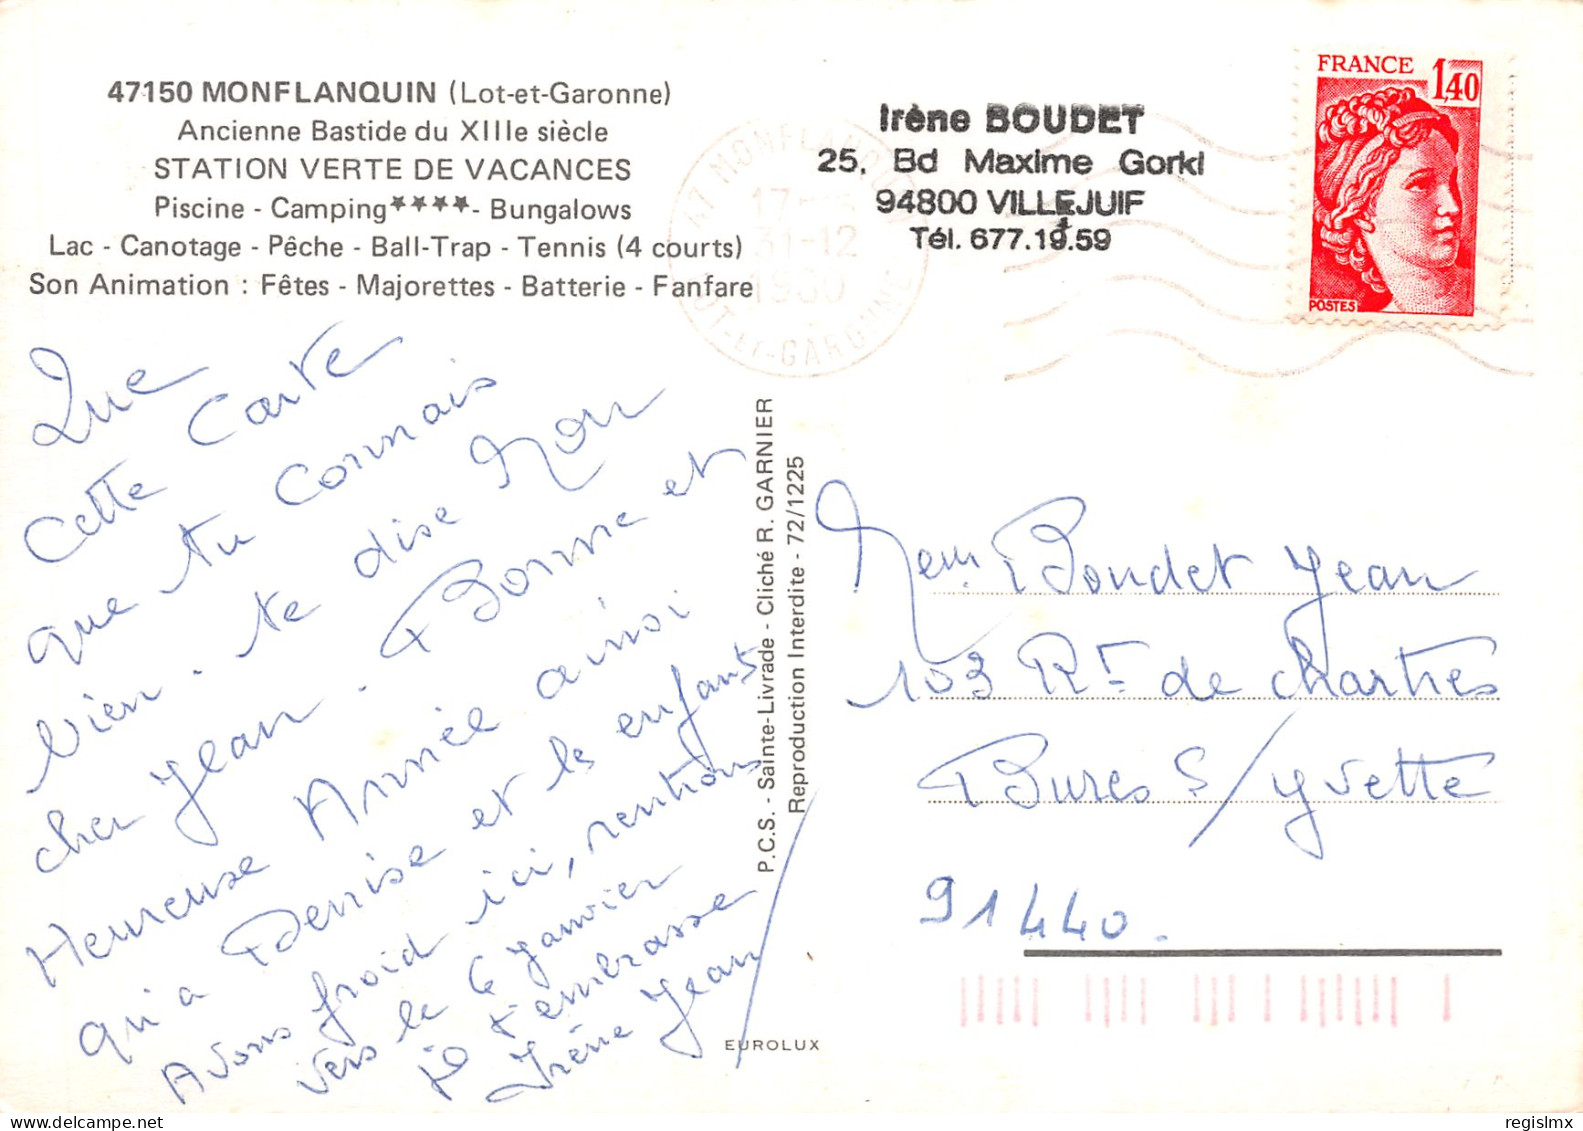 47150 MONFLANQUIN (Lot-et-Garonne)
Ancienne Bastide du XIIIe siècle
STATION VERTE DE VACANCES
Piscine - Camping★★★★- Bungalows
Lac - Canotage - Pêche - Ball-Trap - Tennis (4 courts)
Son Animation : Fêtes - Majorettes - Batterie - Fanfare
Que
Cette Carte
que tu Connais
bien. te dise Mon
cher Jean. Bonne et
Heureuse Année ainsi
qu'a Denise et les enfants
Avons froid ici, rentrons
vers le 6 Janvier
je t'embrasse
Irène Jean
P.C.S. - Sainte-Livrade - Cliché R. GARNIER
Reproduction Interdite - 72/1225
EUROLUX
47 MONFLANQUIN
17-
31-12
1980
LOT-ET-GARONNE
Irène BOUDET
25, Bd Maxime Gorki
94800 VILLEJUIF
Tél. 677.19.59
FRANCE 1,40
POSTES
Boudet Jean
103 Rte de Chartres
Bures s/ Yvette
91440.
regislmx